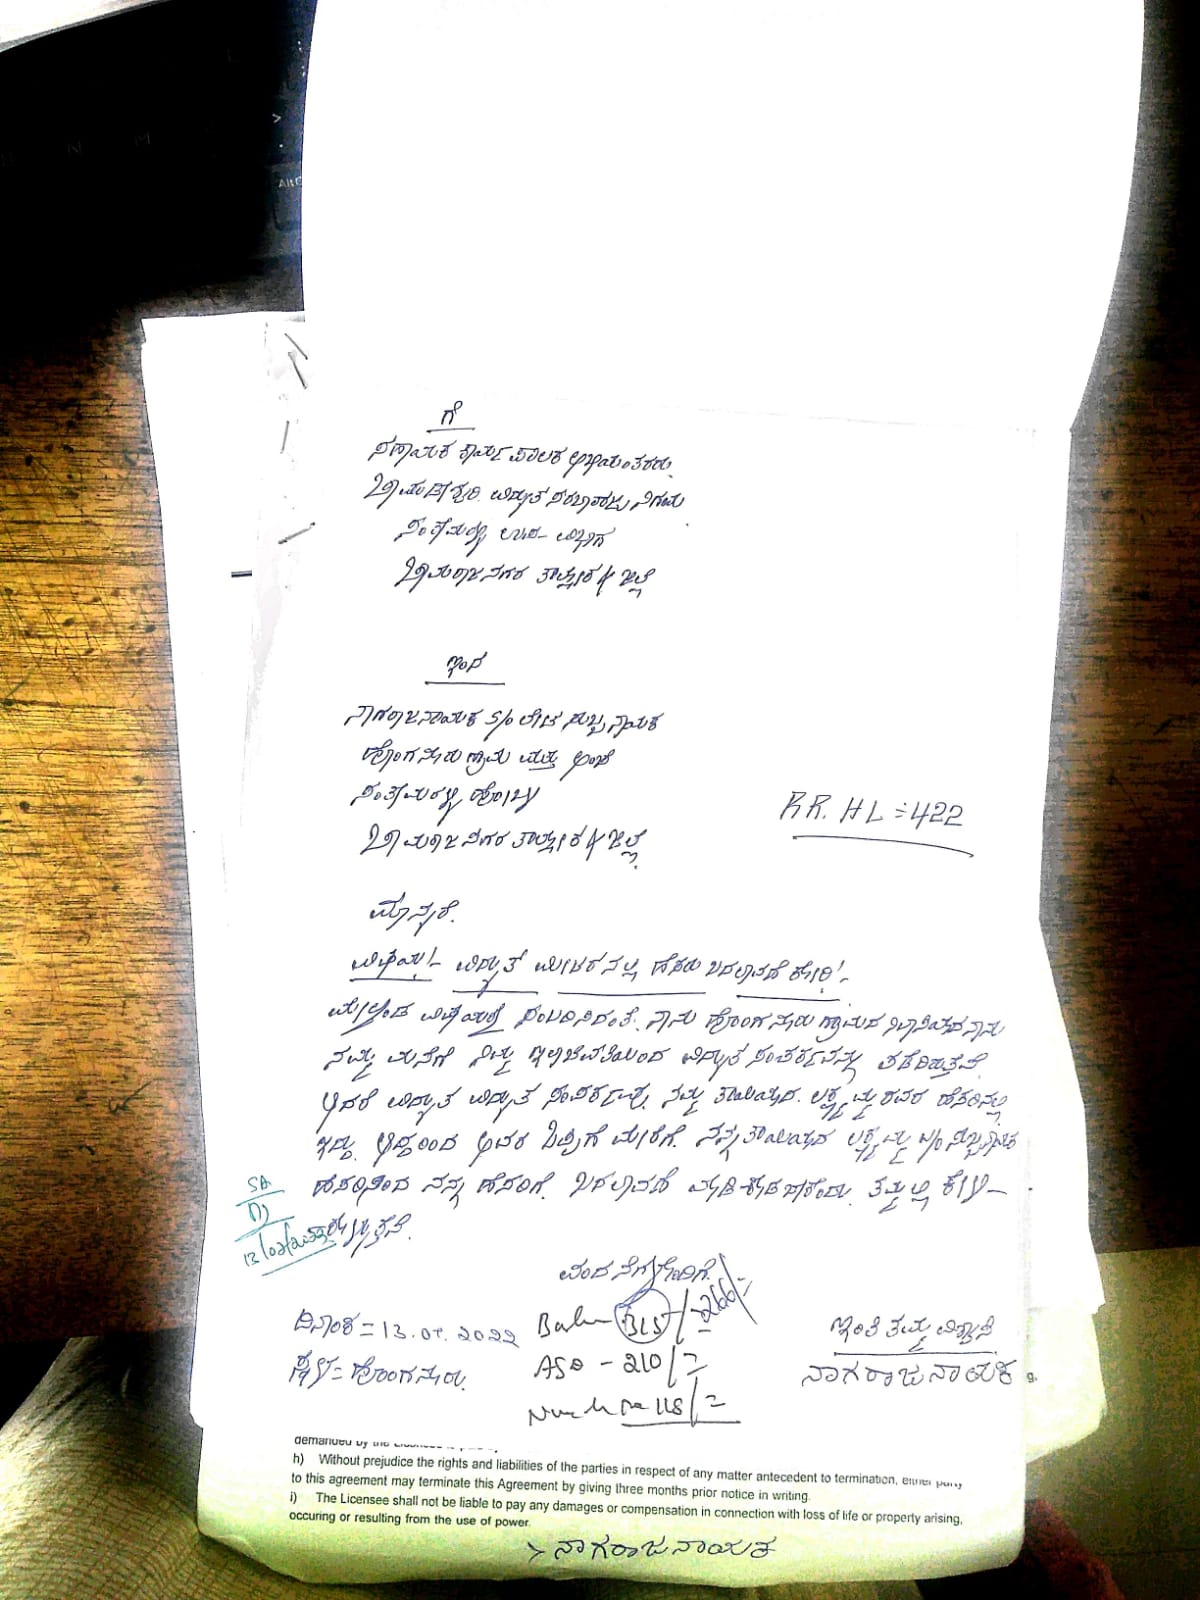 ಗೆ
ಸಹಾಯಕ ಕಾರ್ಯಪಾಲಕ ಅಭಿಯಂತರರು
ಚಾಮುಂಡೇಶ್ವರಿ ವಿದ್ಯುತ್ ಸರಬರಾಜು ನಿಗಮ
ಸಂತೆಮರಳ್ಳಿ ಉಪ-ವಿಭಾಗ
ಚಾಮರಾಜನಗರ ತಾಲ್ಲೂಕು & ಜಿಲ್ಲೆ
ಇಂದ
ನಾಗರಾಜನಾಯಕ S/o ಸುಬ್ಬನಾಯಕ
ಹೊಂಗನೂರು ಗ್ರಾಮ ಮತ್ತು ಅಂಚೆ
ಸಂತೆಮರಳ್ಳಿ ಹೋಬಳಿ
ಚಾಮರಾಜನಗರ ತಾಲ್ಲೂಕು & ಜಿಲ್ಲೆ.
RR. HL = 422
ಮಾನ್ಯರೆ.
ವಿಷಯ:- ವಿದ್ಯುತ್ ಮೀಟರ್‌ನಲ್ಲಿ ಹೆಸರು ಬದಲಾವಣೆ ಕೋರಿ:-
ಮೇಲ್ಕಂಡ ವಿಷಯಕ್ಕೆ ಸಂಬಂಧಿಸಿದಂತೆ. ನಾನು ಹೊಂಗನೂರು ಗ್ರಾಮದ ನಿವಾಸಿಯಾದ ನಾನು
ನಮ್ಮ ಮನೆಗೆ ನಿಮ್ಮ ಇಲಾಖೆವತಿಯಿಂದ ವಿದ್ಯುತ್ ಸಂಪರ್ಕವನ್ನು ಪಡೆದಿರುತ್ತೇವೆ.
ಆದರೆ ವಿದ್ಯುತ್ ವಿದ್ಯುತ್ ಸಂಪರ್ಕವು ನಮ್ಮ ತಾಯಿಯಾದ. ಲಕ್ಷ್ಮಮ್ಮರವರ ಹೆಸರಿನಲ್ಲಿ
ಇದ್ದು. ಆದ್ದರಿಂದ ಅವರ ಒಪ್ಪಿಗೆ ಮೇರೆಗೆ. ನನ್ನ ತಾಯಿಯಾದ ಲಕ್ಷ್ಮಮ್ಮ w/o ಸುಬ್ಬನಾಯಕ
ಹೆಸರಿನಿಂದ ನನ್ನ ಹೆಸರಿಗೆ. ಬದಲಾವಣೆ ಮಾಡಿಕೊಡಬೇಕೆಂದು. ತಮ್ಮಲ್ಲಿ ಕೇಳಿ-
ಕೊಳ್ಳುತ್ತೇನೆ.
SA
ವಂದನೆಗಳೊಂದಿಗೆ.
ದಿನಾಂಕ = 13.07.2022
ಸ್ಥಳ = ಹೊಂಗನೂರು.
266/-
ASD - 210/=
118/=
ಇಂತಿ ತಮ್ಮ ವಿಶ್ವಾಸಿ
ನಾಗರಾಜುನಾಯಕ
demanded by the
h) Without prejudice the rights and liabilities of the parties in respect of any matter antecedent to termination, either party
to this agreement may terminate this Agreement by giving three months prior notice in writing.
i) The Licensee shall not be liable to pay any damages or compensation in connection with loss of life or property arising,
occuring or resulting from the use of power.
> ನಾಗರಾಜುನಾಯಕ